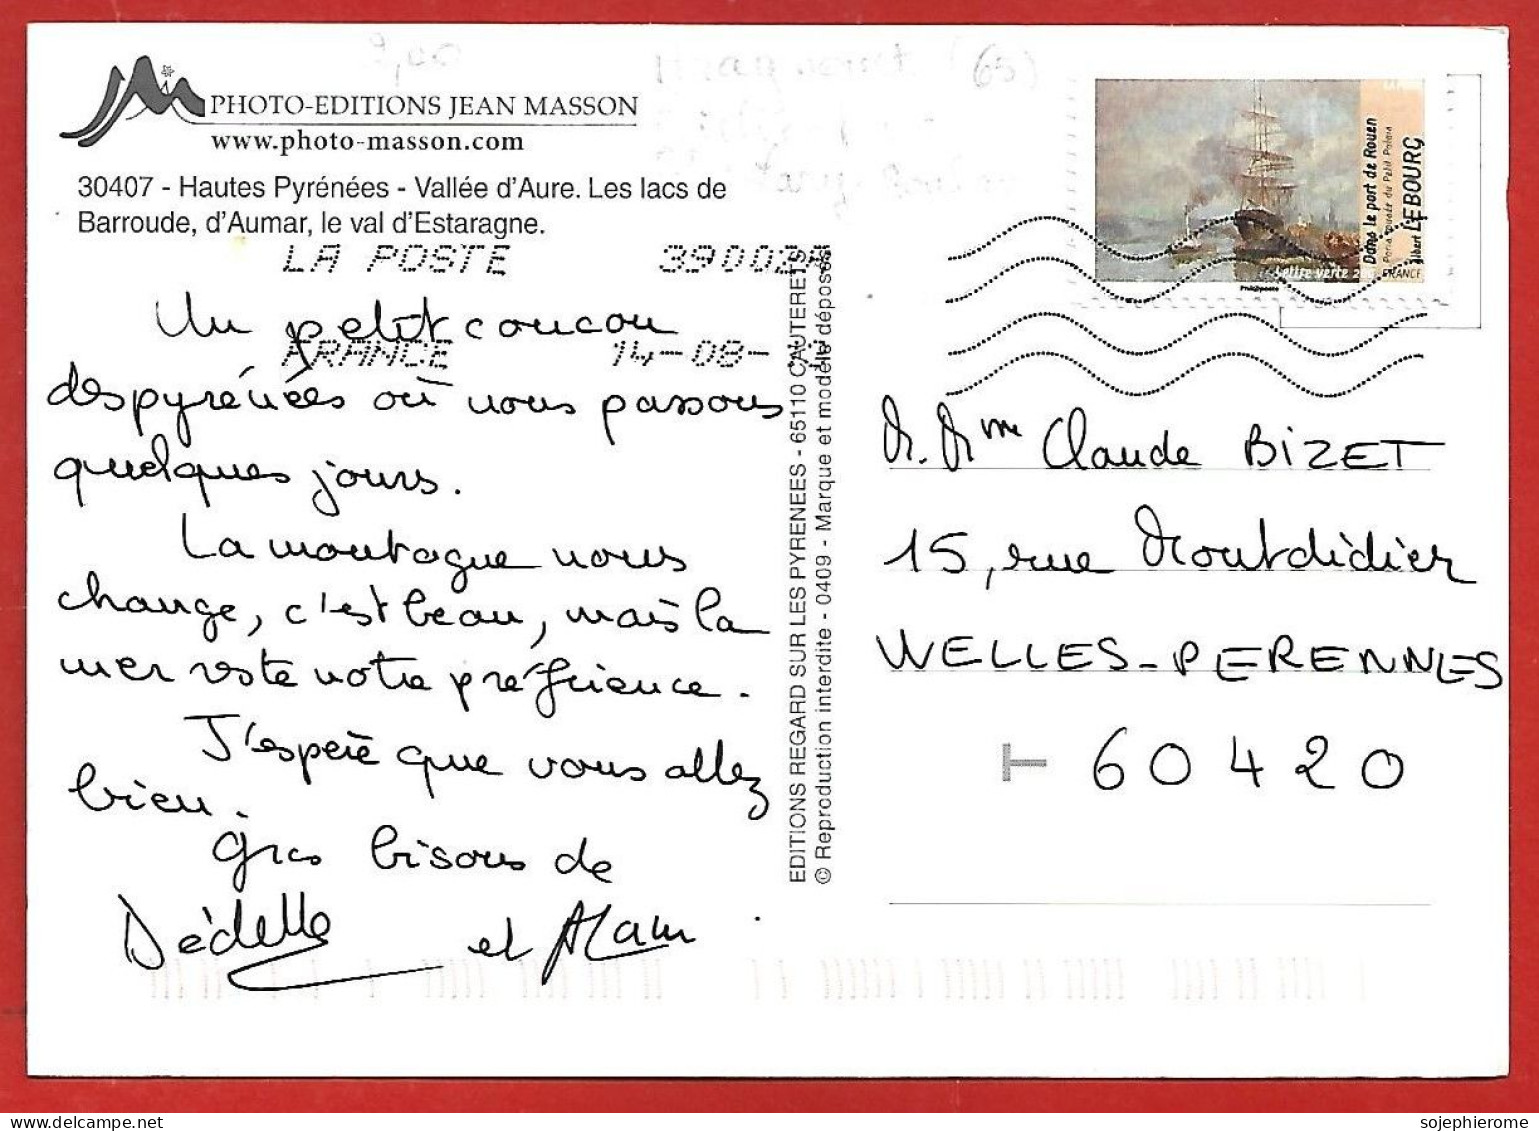 PHOTO-EDITIONS JEAN MASSON
www.photo-masson.com
30407 - Hautes Pyrénées - Vallée d'Aure. Les lacs de
Barroude, d'Aumar, le val d'Estaragne.
LA POSTE 39002A
FRANCE 14-08-
Un petit coucou
des pyrénées où nous passons
quelques jours.
La montagne nous
change, c'est beau, mais la
mer reste notre préférence.
J'espère que vous allez
bien.
Gros bisous de
Dédelle et Alain
EDITIONS REGARD SUR LES PYRENEES - 65110 CAUTERETS
© Reproduction interdite - 0409 - Marque et modèle déposés
9,00
(65)
Dans le port de Rouen
Paris musée du Petit Palais
Albert LEBOURG
Lettre verte 20g FRANCE
Phil@poste
M. Mme Claude BIZET
15, rue Montdidier
WELLES-PERENNES
T 60420
sojephierome